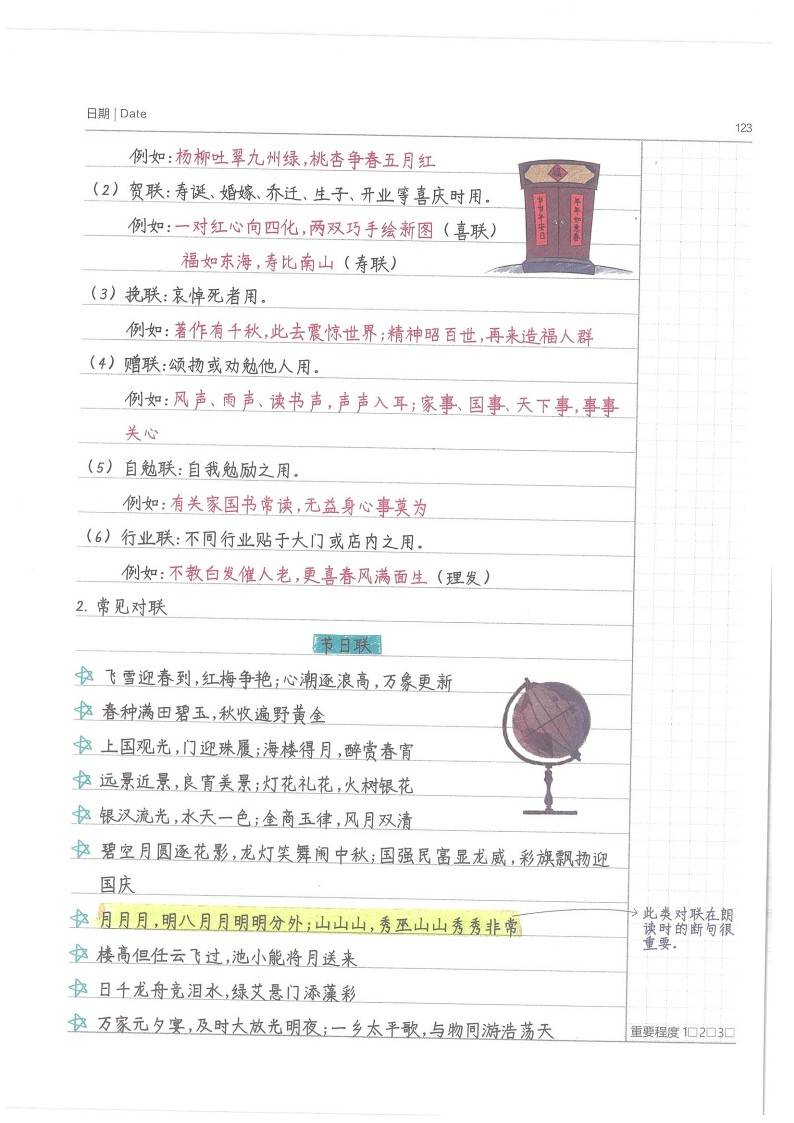 日期 | Date
123
例如:杨柳吐翠九州绿,桃杏争春五月红
(2)贺联:寿诞、婚嫁、乔迁、生子、开业等喜庆时用。
例如:一对红心向四化,两双巧手绘新图(喜联)
福如东海,寿比南山(寿联)
(3)挽联:哀悼死者用。
例如:著作有千秋,此去震惊世界;精神昭百世,再来造福人群
(4)赠联:颂扬或劝勉他人用。
例如:风声、雨声、读书声,声声入耳;家事、国事、天下事,事事
关心
(5)自勉联:自我勉励之用。
例如:有关家国书常读,无益身心事莫为
(6)行业联:不同行业贴于大门或店内之用。
例如:不教白发催人老,更喜春风满面生(理发)
2. 常见对联
节日联
飞雪迎春到,红梅争艳;心潮逐浪高,万象更新
春种满田碧玉,秋收遍野黄金
上国观光,门迎珠履;海楼得月,醉赏春宵
远景近景,良宵美景;灯花礼花,火树银花
银汉流光,水天一色;金商玉律,风月双清
碧空月圆逐花影,龙灯笑舞闹中秋;国强民富显龙威,彩旗飘扬迎
国庆
月月月,明八月月明明分外;山山山,秀巫山山秀秀非常
此类对联在朗
读时的断句很
重要。
楼高但任云飞过,池小能将月送来
日千龙舟竞泪水,绿艾悬门添藻彩
万家元夕宴,及时大放光明夜;一乡太平歌,与物同游浩荡天
重要程度 1□2□3□